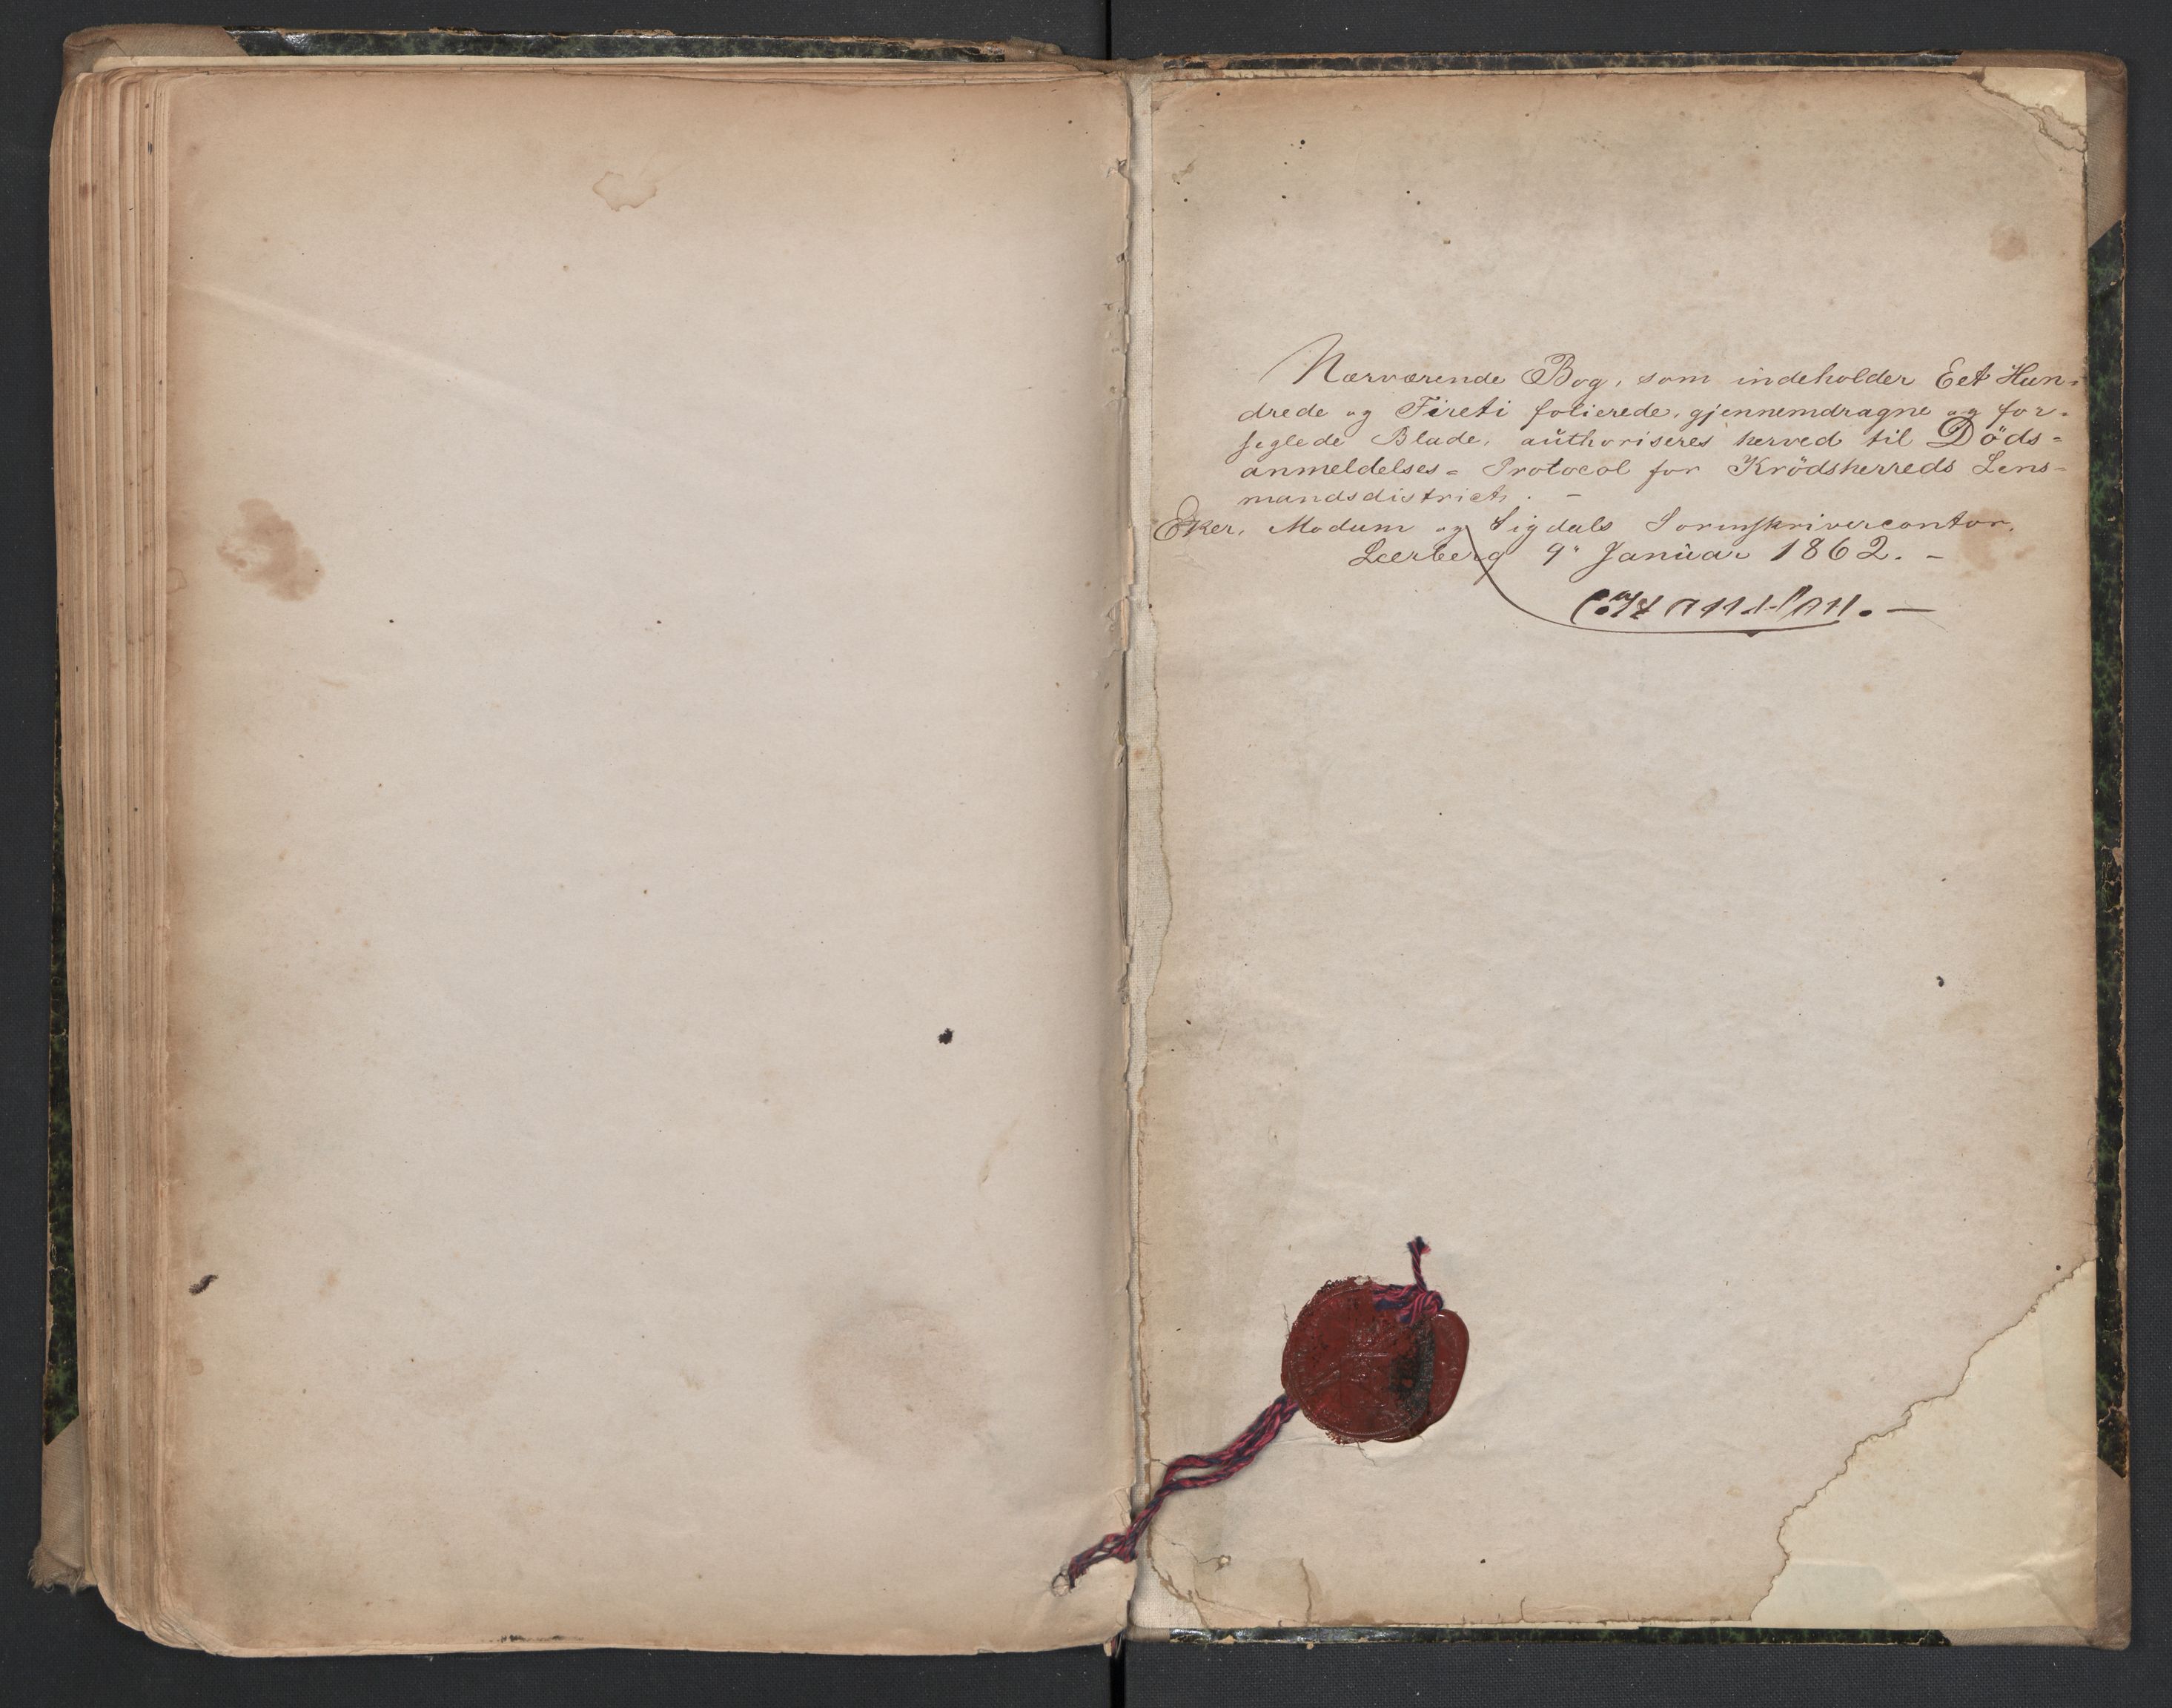 Nærværende Bog, som indeholder Eet Hun-
drede og Fireti folierede, gjennemdragne og for-
seglede Blade, aŭthoriseres herved til Döds-
anmeldelses-Protocol for Krödsherreds Lens-
mandsdistrict. -
Eker, Modum og Sigdals Sorenskrivercontor,
Leerberg 9' Janŭar 1862. -